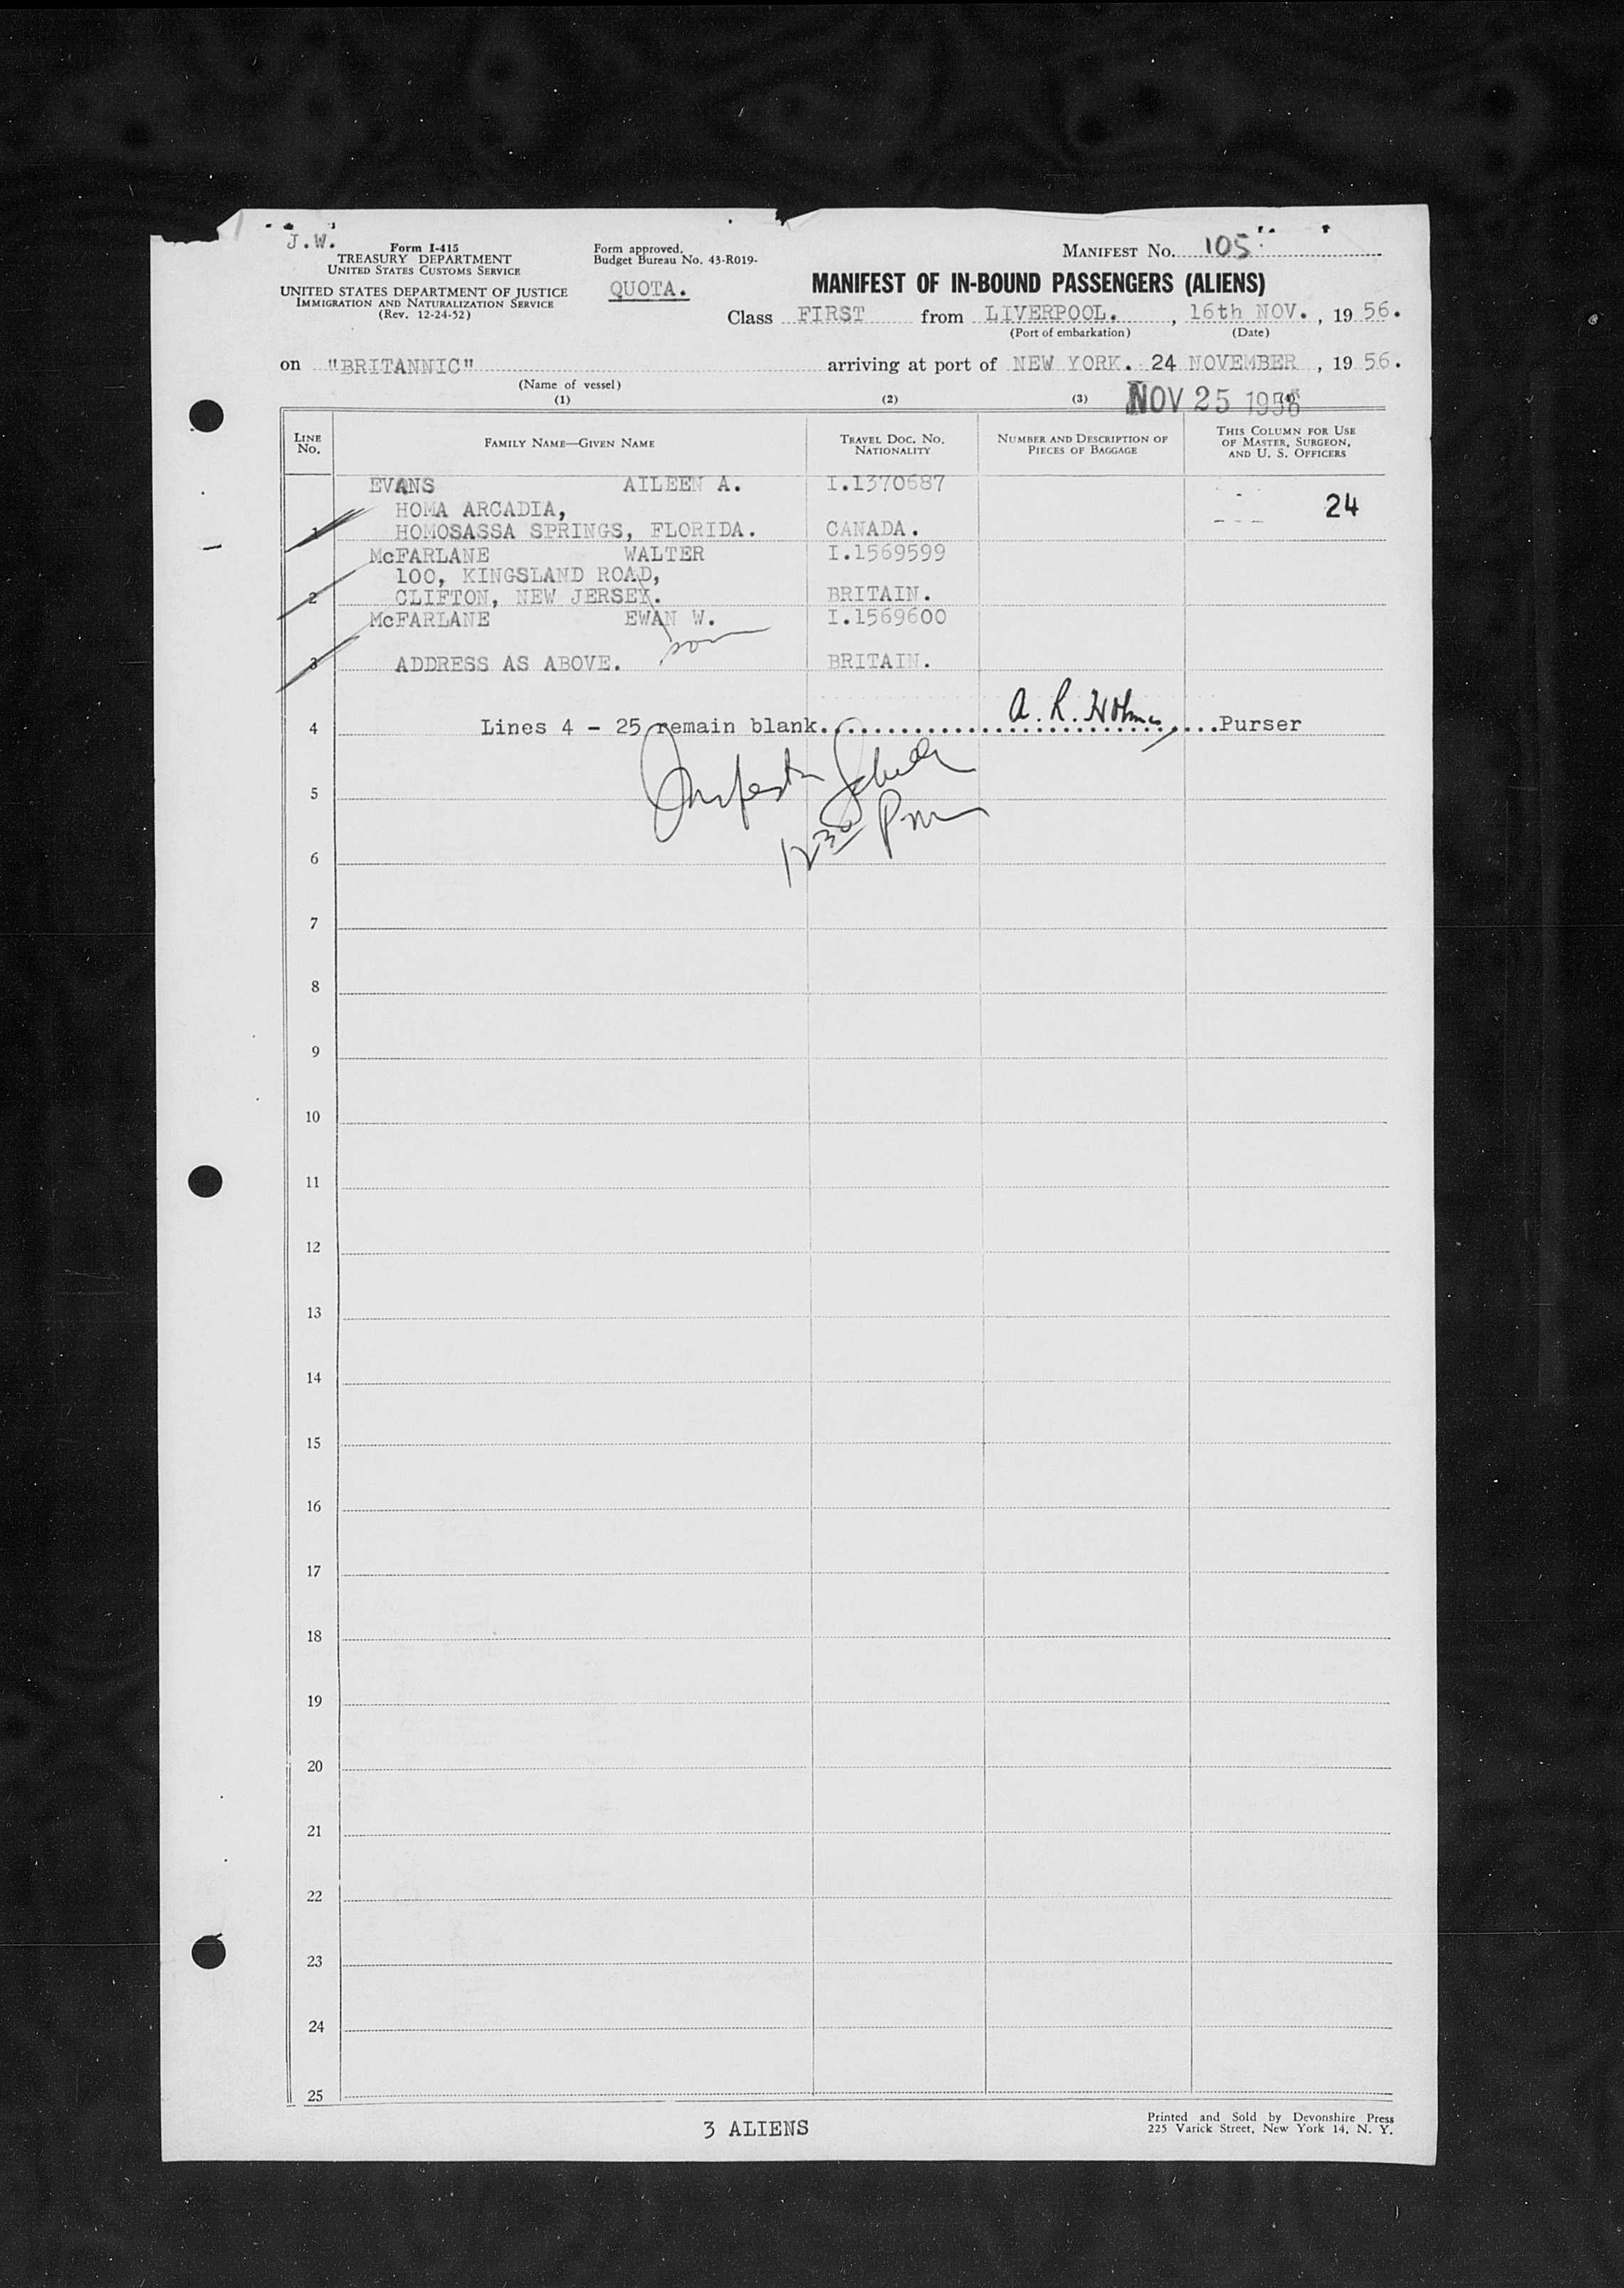 J.W.
Form I-415
TREASURY DEPARTMENT
UNITED STATES CUSTOMS SERVICE
UNITED STATES DEPARTMENT OF JUSTICE
IMMIGRATION AND NATURALIZATION SERVICE
(Rev. 12-24-52)
Form approved.
Budget Bureau No. 43-R019-
QUOTA.
MANIFEST No. 105
MANIFEST OF IN-BOUND PASSENGERS (ALIENS)
Class FIRST from LIVERPOOL. , 16th NOV. , 19 56.
(Port of embarkation) (Date)
on "BRITANNIC" arriving at port of NEW YORK. 24 NOVEMBER , 19 56.
(Name of vessel)
NOV 25 1956
(1) (2) (3) (4)
LINE No. FAMILY NAME—GIVEN NAME TRAVEL DOC. No. NATIONALITY NUMBER AND DESCRIPTION OF PIECES OF BAGGAGE THIS COLUMN FOR USE OF MASTER, SURGEON, AND U. S. OFFICERS
EVANS AILEEN A. I.1370687
HOMA ARCADIA, 24
1 HOMOSASSA SPRINGS, FLORIDA. CANADA.
McFARLANE WALTER I.1569599
100, KINGSLAND ROAD,
2 CLIFTON, NEW JERSEY. BRITAIN.
McFARLANE EWAN W. I.1569600
son
3 ADDRESS AS ABOVE. BRITAIN.
4 Lines 4 - 25 remain blank. A. R. Holmes Purser
5
12 30 Pm
6
7
8
9
10
11
12
13
14
15
16
17
18
19
20
21
22
23
24
25
3 ALIENS
Printed and Sold by Devonshire Press
225 Varick Street, New York 14, N. Y.